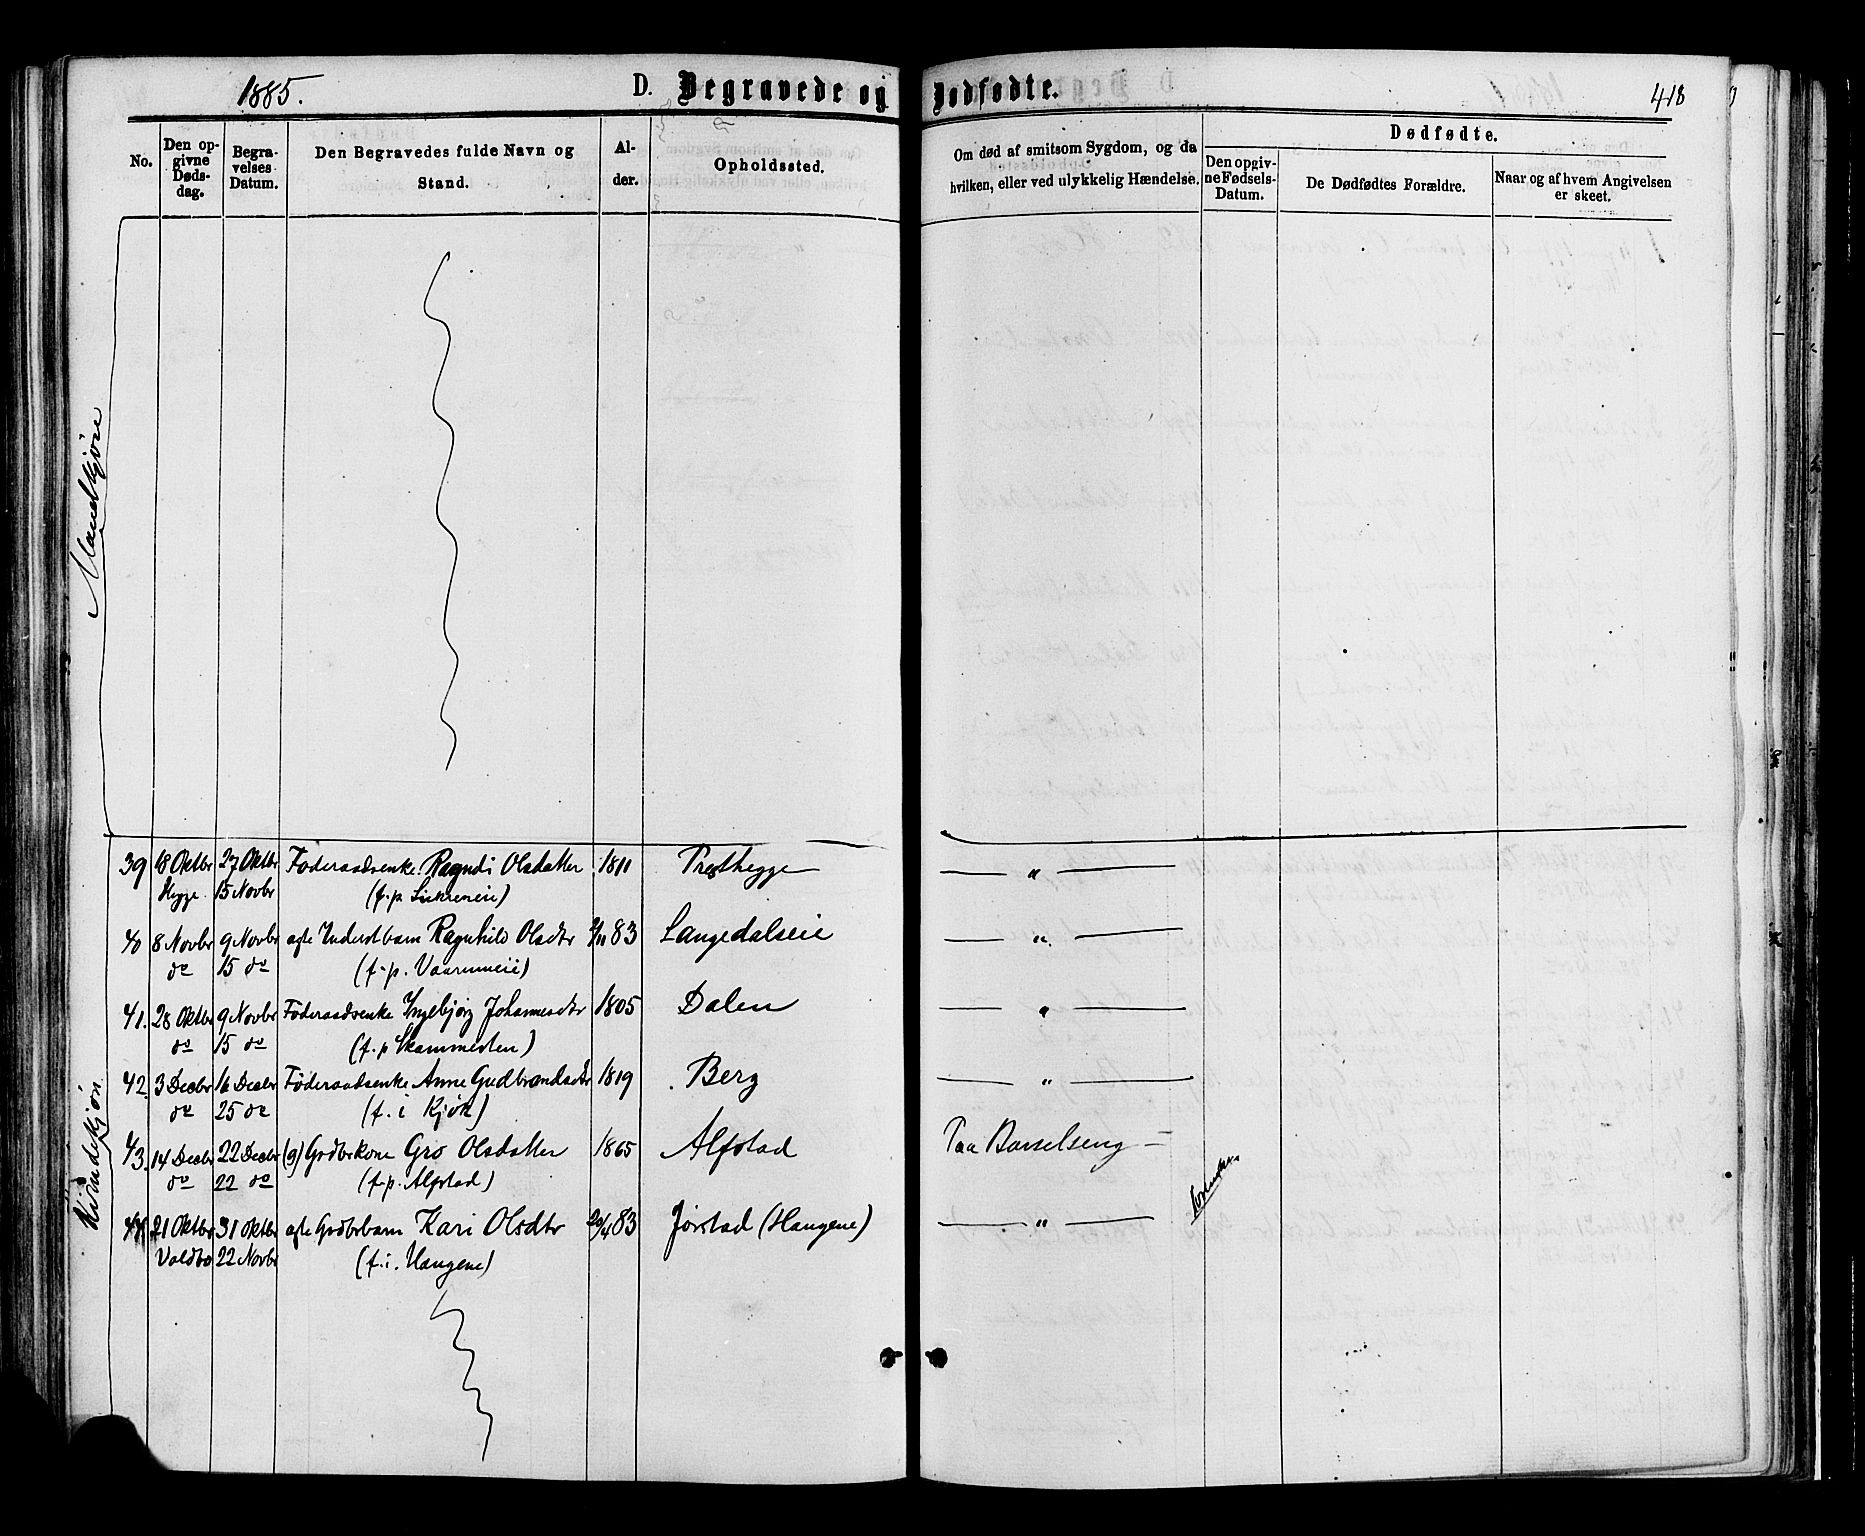 1885.
D. Begravede og Dødfødte.
418
No.
Den opgivne Dødsdag.
Begravelses Datum.
Den Begravedes fulde Navn og Stand.
Alder.
Opholdssted.
Om død af smitsom Sygdom, og da hvilken, eller ved ulykkelig Hændelse.
Dødfødte.
Den opgivne Fødsels-Datum.
De Dødfødtes Forældre.
Naar og af hvem Angivelsen er skeet.
Mandkjøn
Kvindekjøn.
39 18 Oktbr 27 Oktbr Føderaadsenke Ragndi Olsdatter 1811 Presthegge — " —
Hegge 15 Novbr
40 8 Novbr 9 Novbr ægte Inderstbarn Ragnhild Olsdtr 2/11 83 Langedalseie — " —
do 15 do (f. p. Vaarumeie)
41. 28 Oktbr 9 Novbr Føderaadsenke Ingebjørg Johannesdtr 1805 Dalen — " —
do 15 do (f. p. Skammesten)
42. 3 Decbr 16 Decbr Føderaadsenke Anne Gudbrandsdtr 1819 Berg — " —
do 25 do (f. i Kjøk)
43. 14 Decbr 22 Decbr (g) Grdbrkone Gro Olsdatter 1865 Alfstad Paa Barselseng —
do 22 do (f. p. Alfstad)
44 21 Oktbr 31 Oktbr ægte Grdbrbarn Kari Olsdtr 29/4 83 Jørstad (Haugene) — " —
Voldbo 22 Novbr (f. i. Haugene)